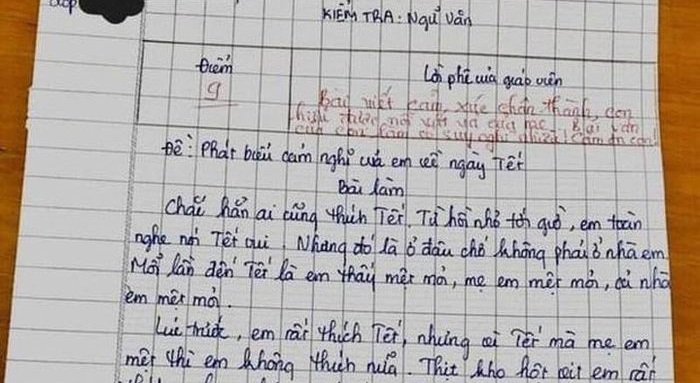 Lớp
KIỂM TRA: Ngữ Văn
Điểm
Lời phê của giáo viên
9
Bài viết cảm xúc chân thành, con
hiểu được nỗi vất vả của mẹ. Bài văn
của con làm cô suy nghĩ nhiều! Cảm ơn con!
Đề: Phát biểu cảm nghĩ của em về ngày Tết
Bài làm
Chắc hẳn ai cũng thích Tết. Từ hồi nhỏ tới giờ, em toàn
nghe nói Tết vui. Nhưng đó là ở đâu chớ không phải ở nhà em.
Mỗi lần đến Tết là em thấy mệt mỏi, mẹ em mệt mỏi, cả nhà
em mệt mỏi.
Lúc trước, em rất thích Tết, nhưng vì Tết mà mẹ em
mệt thì em không thích nữa. Thịt kho hột vịt em rất